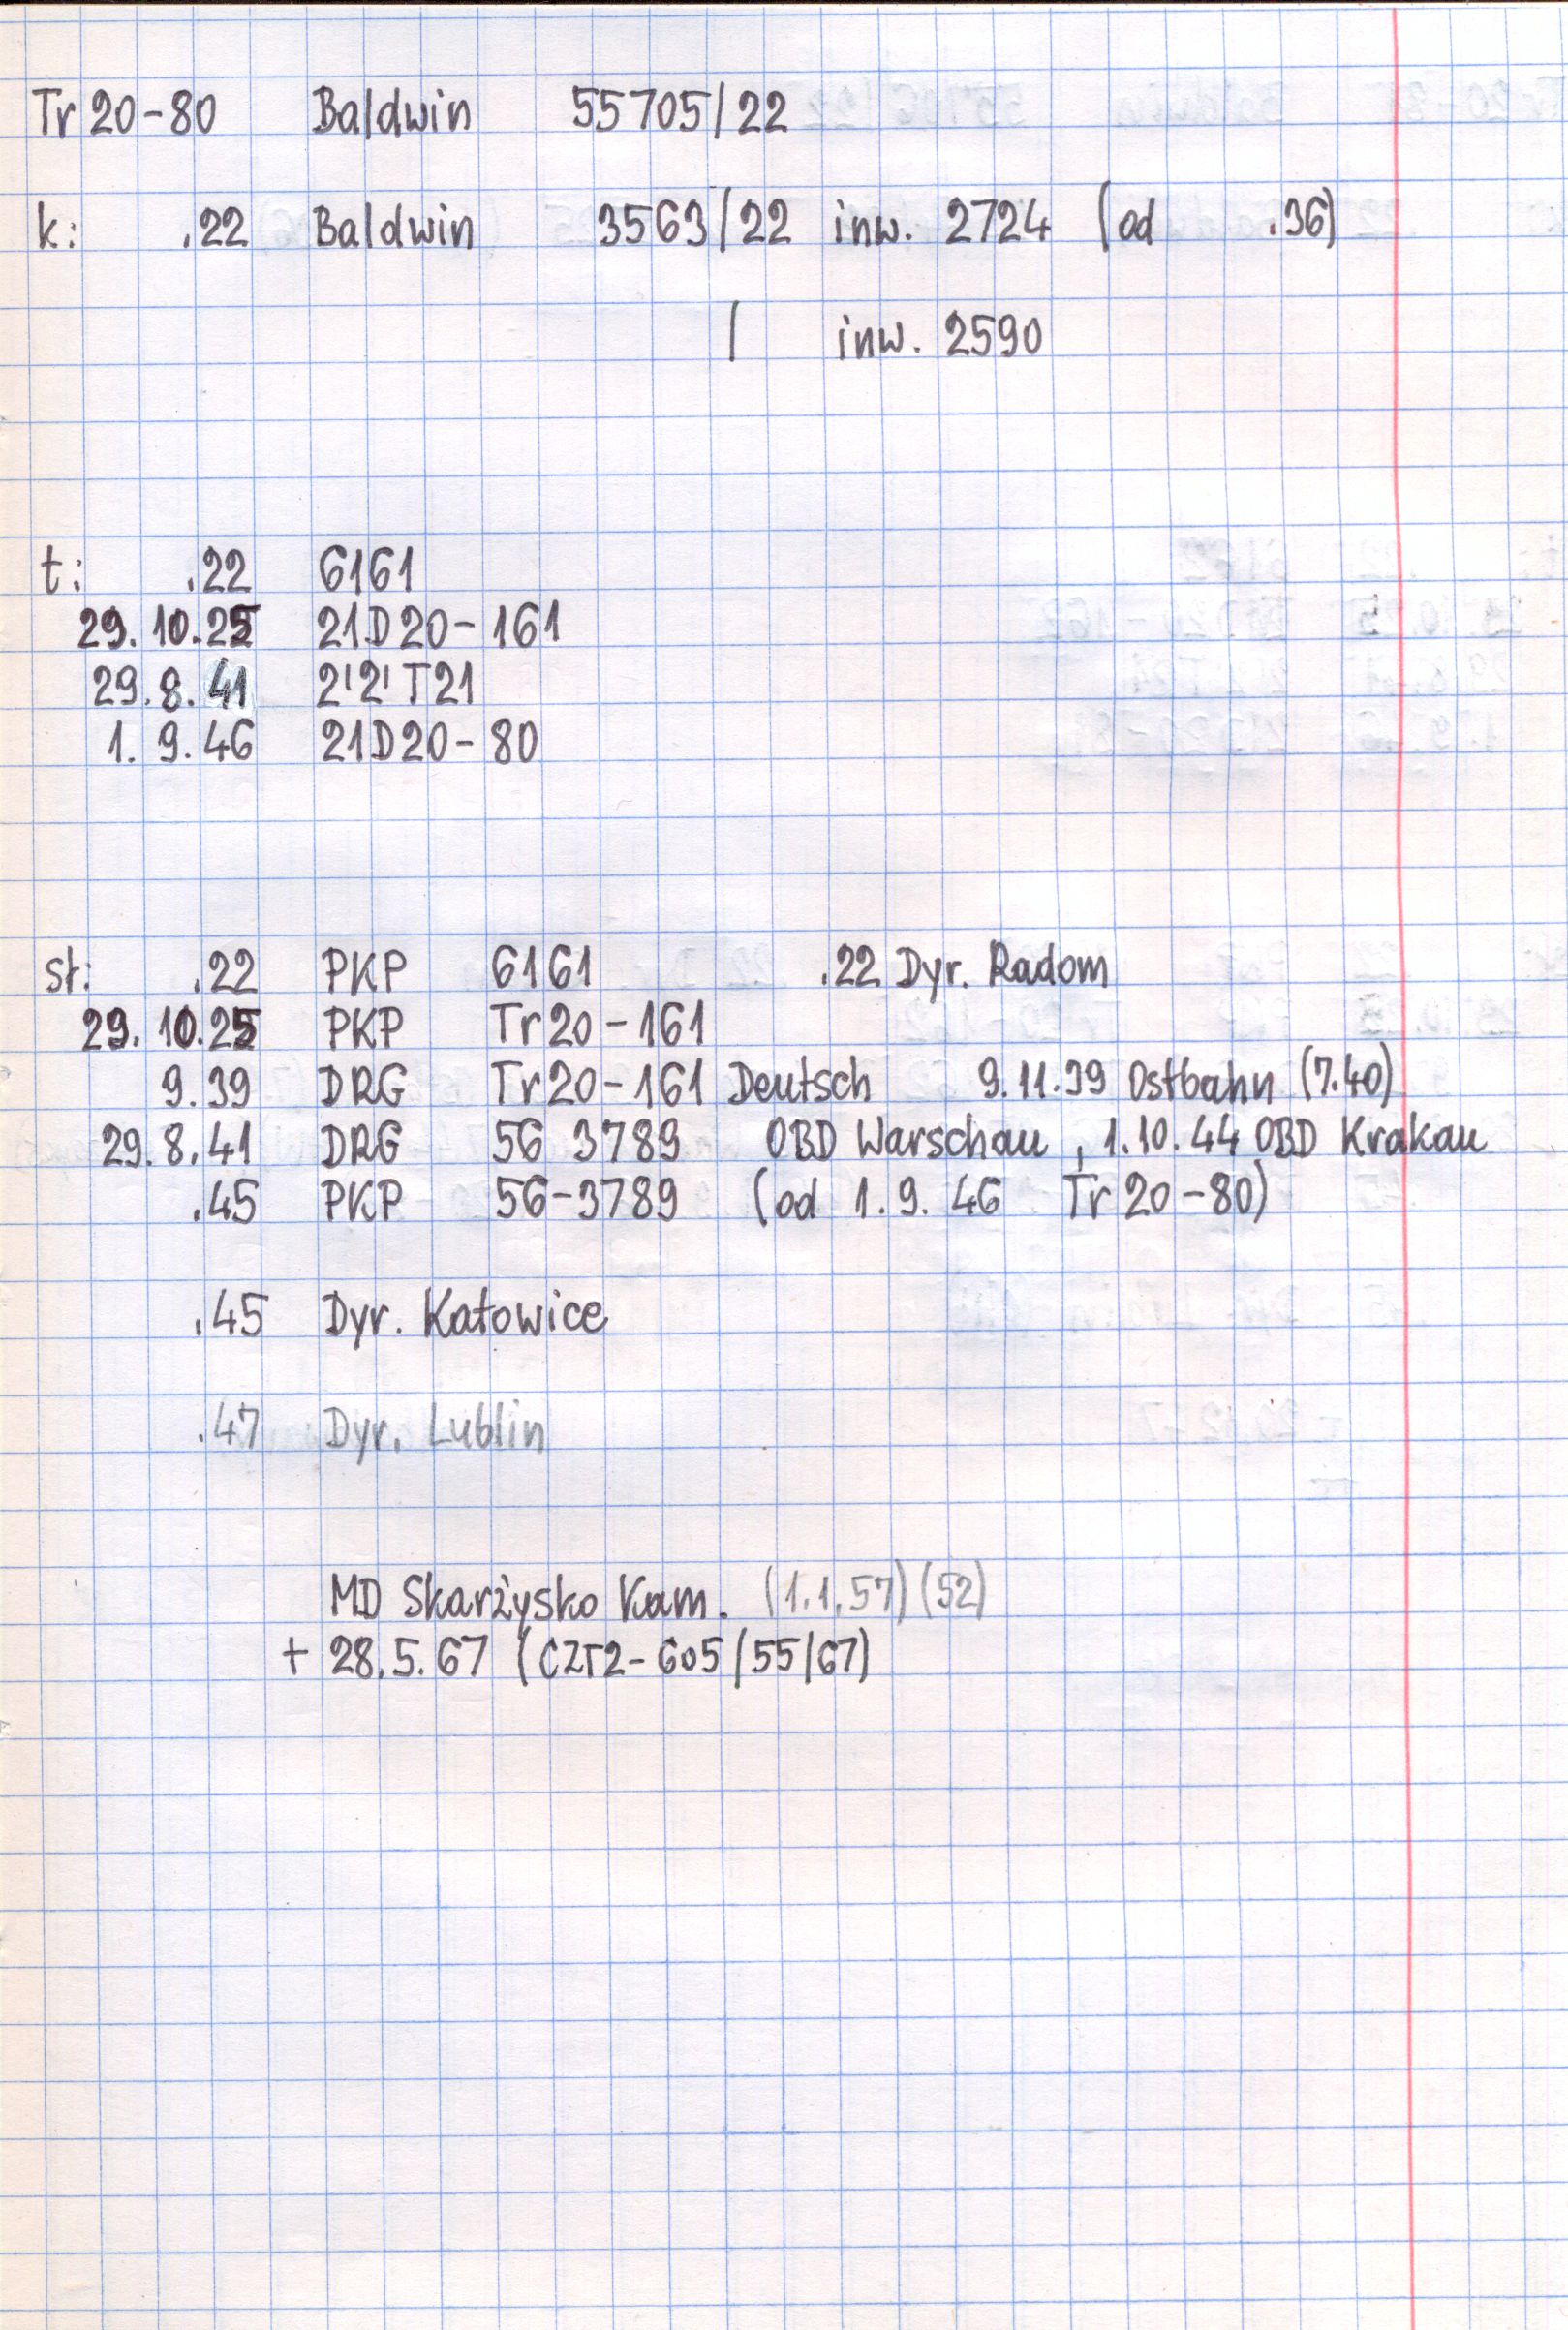 Tr 20-80 Baldwin 55705/22
k: .22 Baldwin 3563/22 inw. 2724 (od .36)
/ inw. 2590
t: .22 6161
29.10.25 21D20-161
29.8.41 2'2' T21
1.9.46 21D20-80
st: .22 PKP 6161 .22 Dyr. Radom
29.10.25 PKP Tr20-161
9.39 DRG Tr20-161 Deutsch 9.11.39 Ostbahn (7.40)
29.8.41 DRG 56 3789 OBD Warschau, 1.10.44 OBD Krakau
.45 PKP 56-3789 (od 1.9.46 Tr 20-80)
.45 Dyr. Katowice
.47 Dyr. Lublin
MD Skarżysko Kam. (1.1.57) (52)
+ 28.5.67 (CZT2-605/55/67)